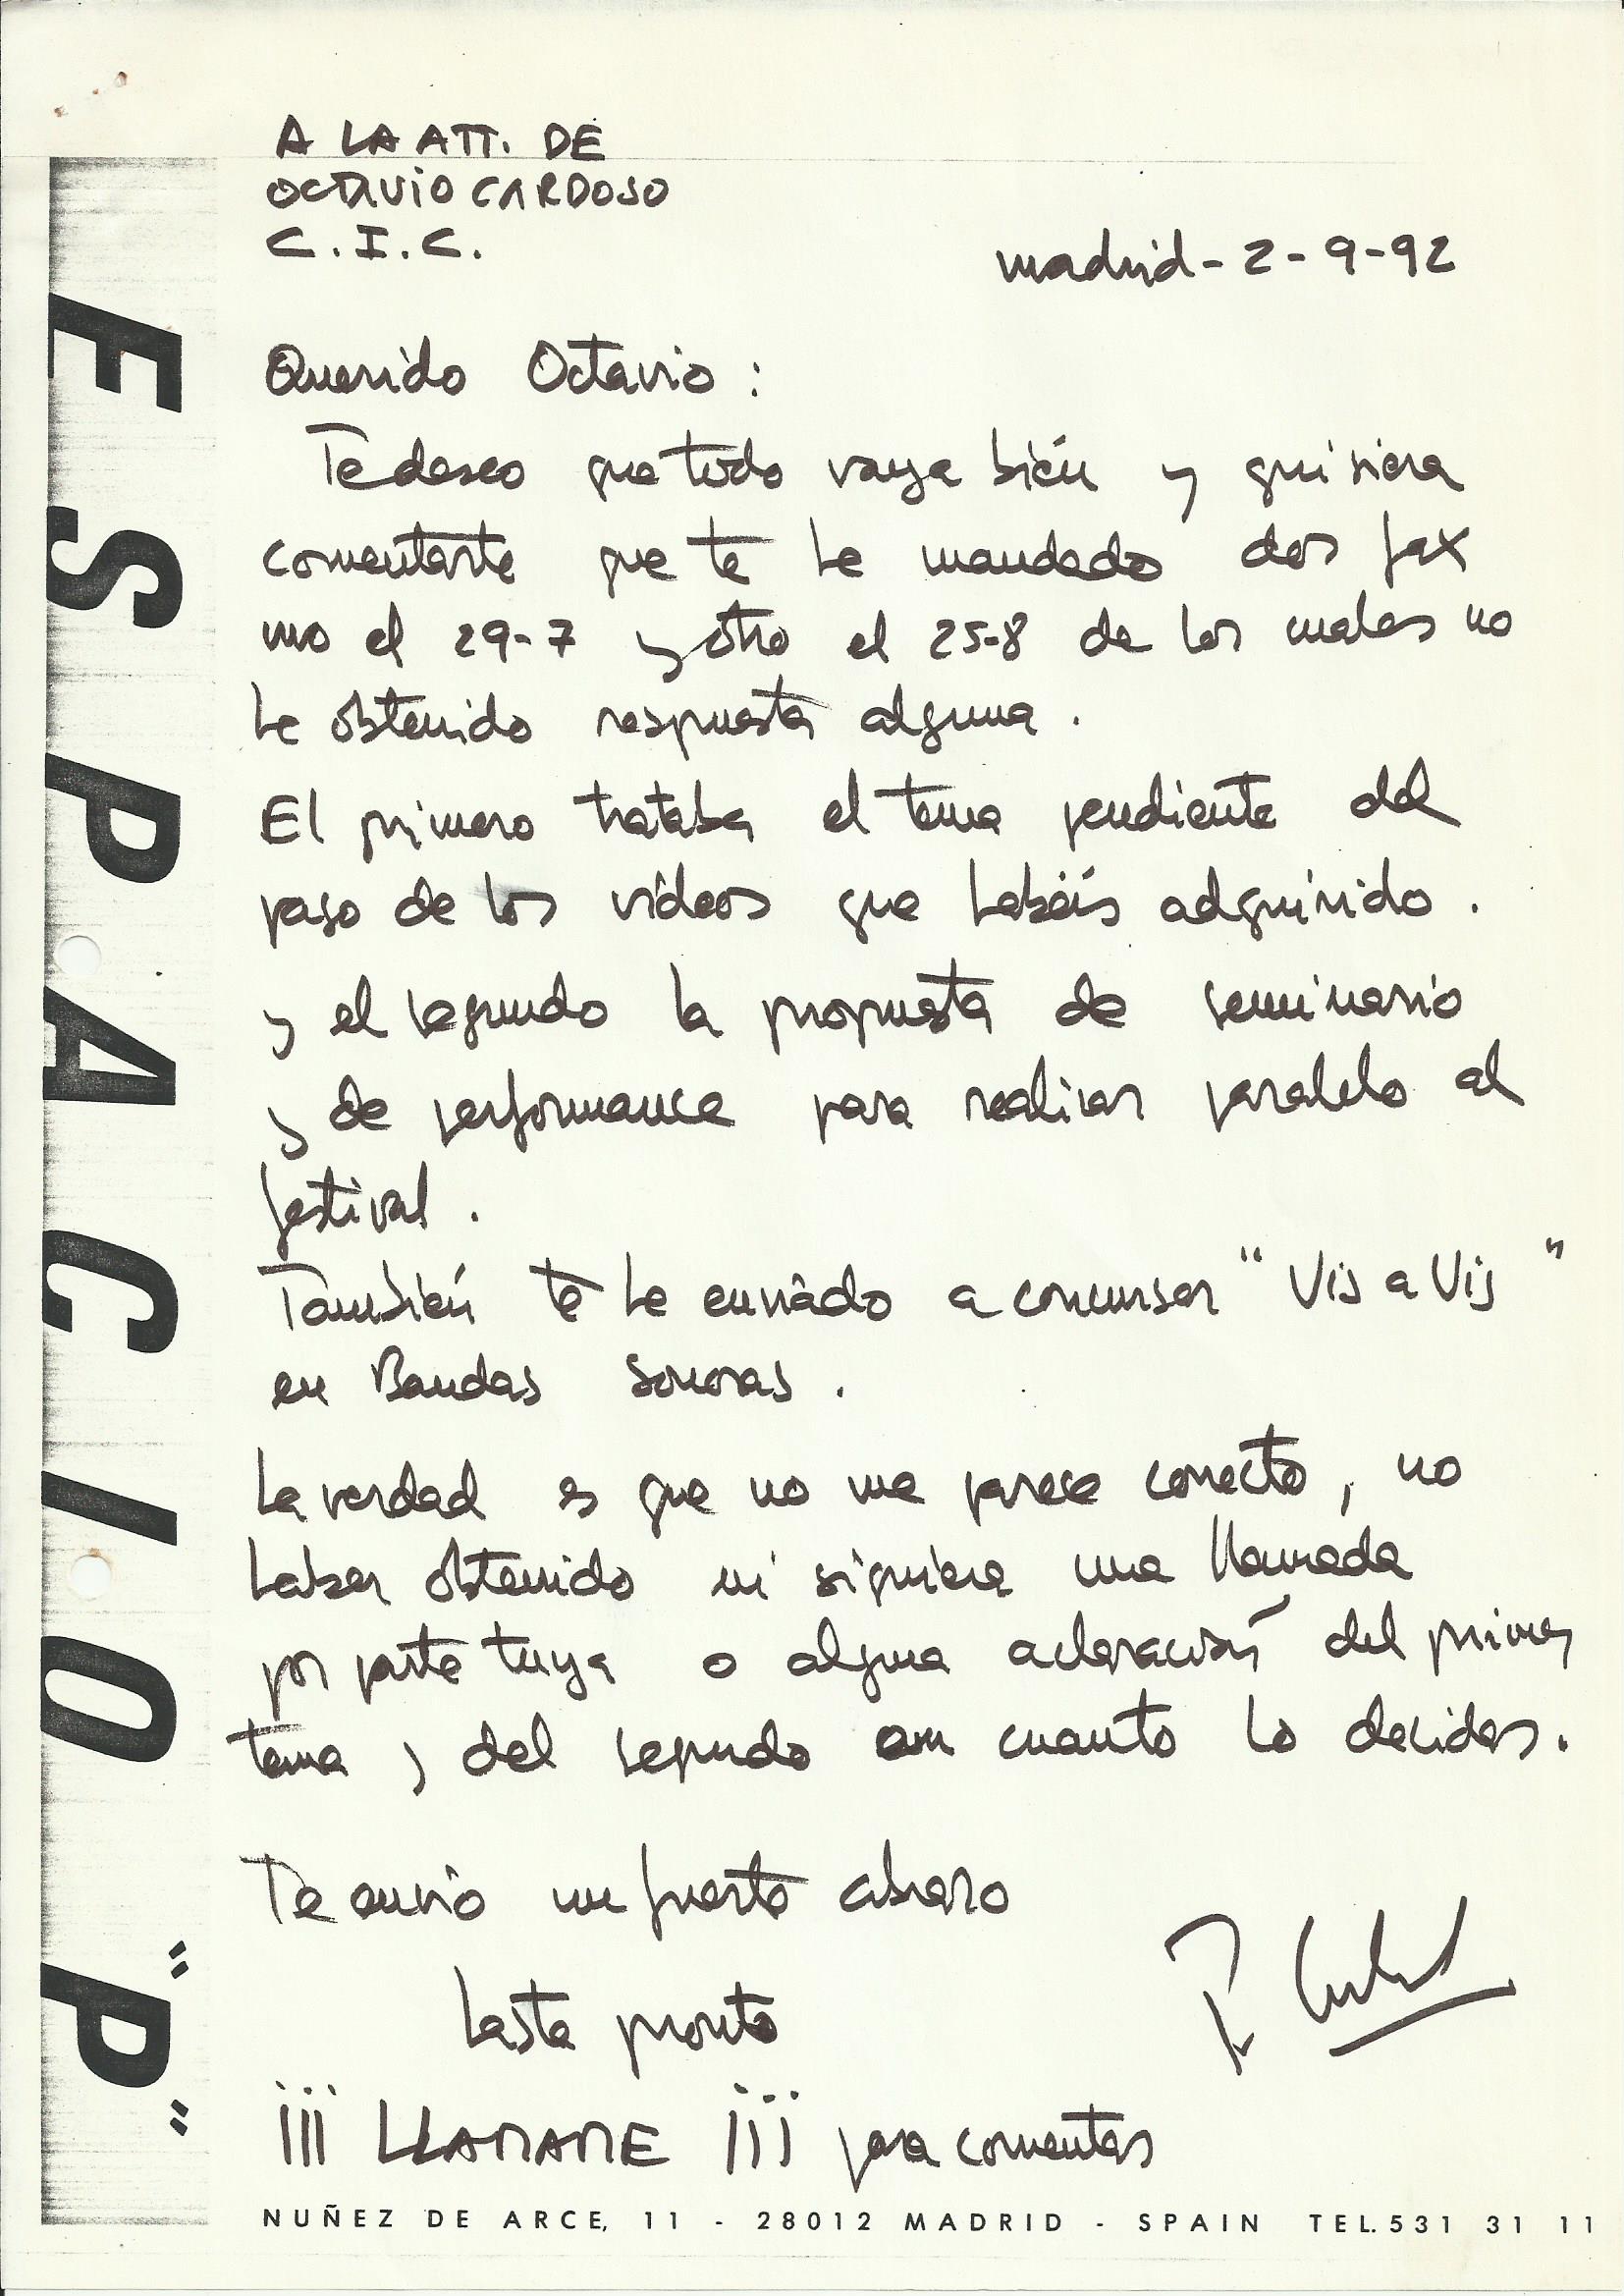 ESPACIO "P"
A LA ATT. DE
OCTAVIO CARDOSO
C.I.C.
madrid - 2 - 9 - 92
Querido Octavio :
Te deseo que todo vaya bién y quisiera
comentarte que te he mandado dos fax
uno el 29-7 y otro el 25-8 de los cuales no
he obtenido respuesta alguna .
El primero trataba el tema pendiente del
pago de los videos que habéis adquirido .
y el segundo la propuesta de seminario
y de performance para realizar paralelo al
festival .
También te he enviado a concursar " Vis a Vis "
en Bandas Sonoras .
La verdad es que no me parece correcto , no
haber obtenido ni siquiera una llamada
por parte tuya o alguna aclaración del primer
tema y del segundo en cuanto lo decidas .
Te envio un fuerte abrazo
hasta pronto
¡¡¡ LLAMAME ¡¡¡ para comentar
NUÑEZ DE ARCE, 11 - 28012 MADRID - SPAIN TEL. 531 31 11